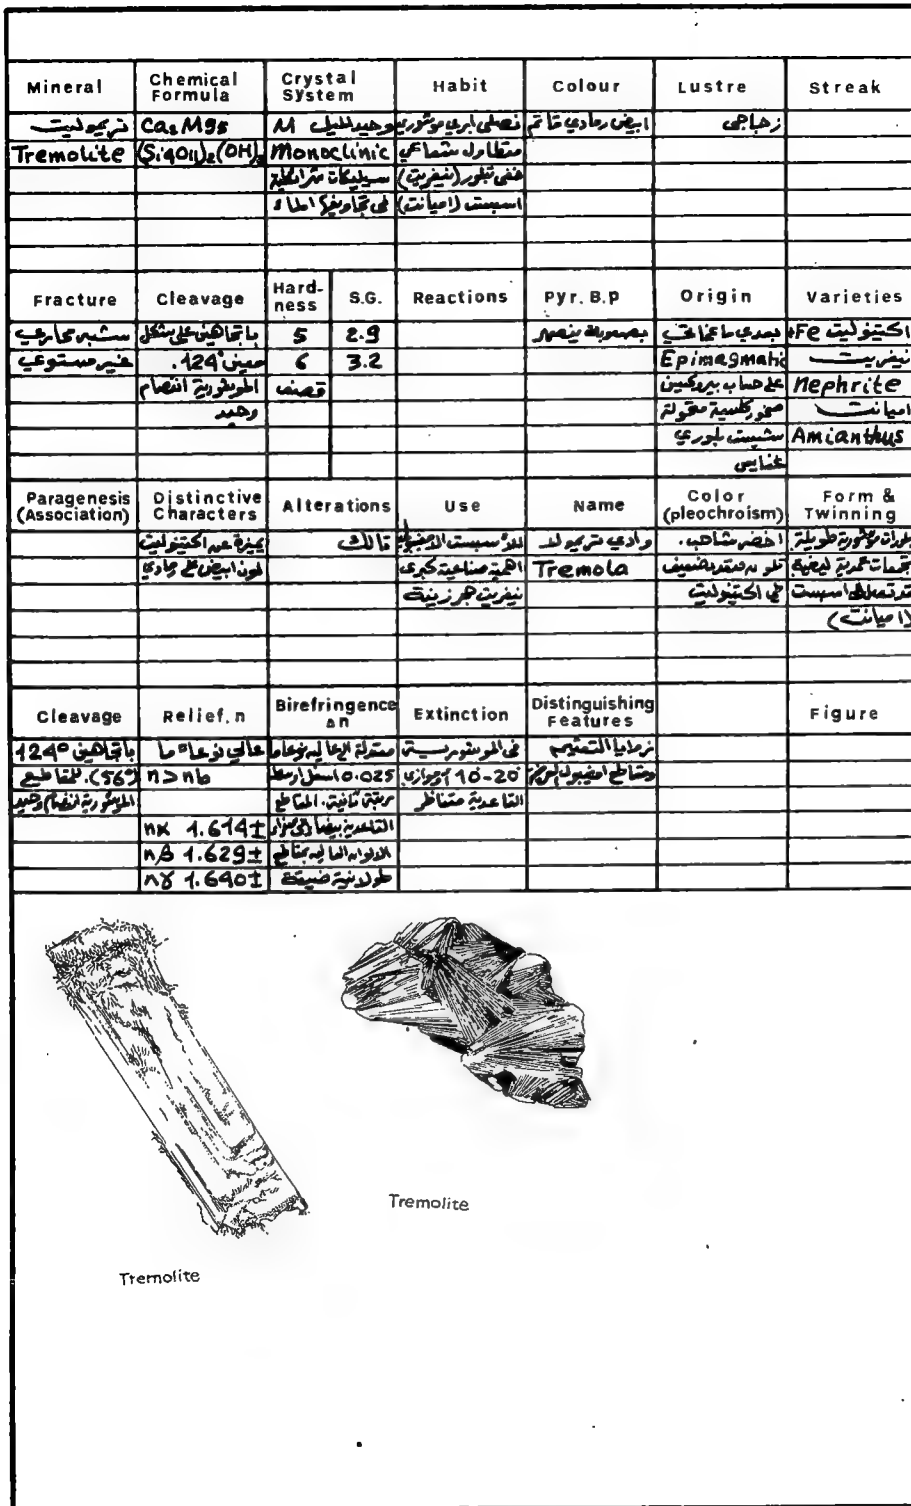 Mineral Chemical Formula Crystal System Habit Colour Lustre Streak
تريموليت Ca₂Mg₅ وحيد الميل M نصلي ابري موشوري ابيض رمادي قاتم زجاجي
Tremolite (Si₄O₁₁)₂(OH)₂ Monoclinic متطاول شعاعي
سيليكات متراكبة خفي تبلور (نيفريت)
في تجاويفها الماء اسبست (اميانت)
Fracture Cleavage Hardness S.G. Reactions Pyr. B.p Origin Varieties
شبه محاري باتجاهين على شكل 5 2.9 بصعوبة ينصهر بعدي ماغماتي اكتينوليت Fe+
غير مستوي معيني 124°. 6 3.2 Epimagmatic نيفريت
الموشورية انفصام قصف على حساب بيروكسين Nephrite
وحيد صخور كلسية متحولة اميانت
شيست بلوري Amianthus
غنايس
Paragenesis (Association) Distinctive Characters Alterations Use Name Color (pleochroism) Form & Twinning
يميزه عن اكتينوليت تالك للأسبست وادي تريمولا اخضر شاحب. بلورات موشورية طويلة
لون ابيض على رمادي اهمية صناعية كبرى Tremola تلون متعدد ضعيف تجمعات عمدية ليفية
نيفريت حجر زينة في اكتينوليت اسبست
(اميانت)
Cleavage Relief. n Birefringence Δn Extinction Distinguishing Features Figure
باتجاهين 124° عالي نوعا ما معتدلة الى عالية نوعا ما في الموشورية زوايا
(56°). للمقاطع n>nb 0.025 10-20° ومقاطع امفيبول
الموشورية انفصام وحيد مرتبة ثانية. المقاطع القاعدية متناظر
nα 1.614± القاعدية بيضاء الى صفراء
nβ 1.629± الالوان العالية بمقاطع
nγ 1.640± طولانية ضيقة
Tremolite
Tremolite